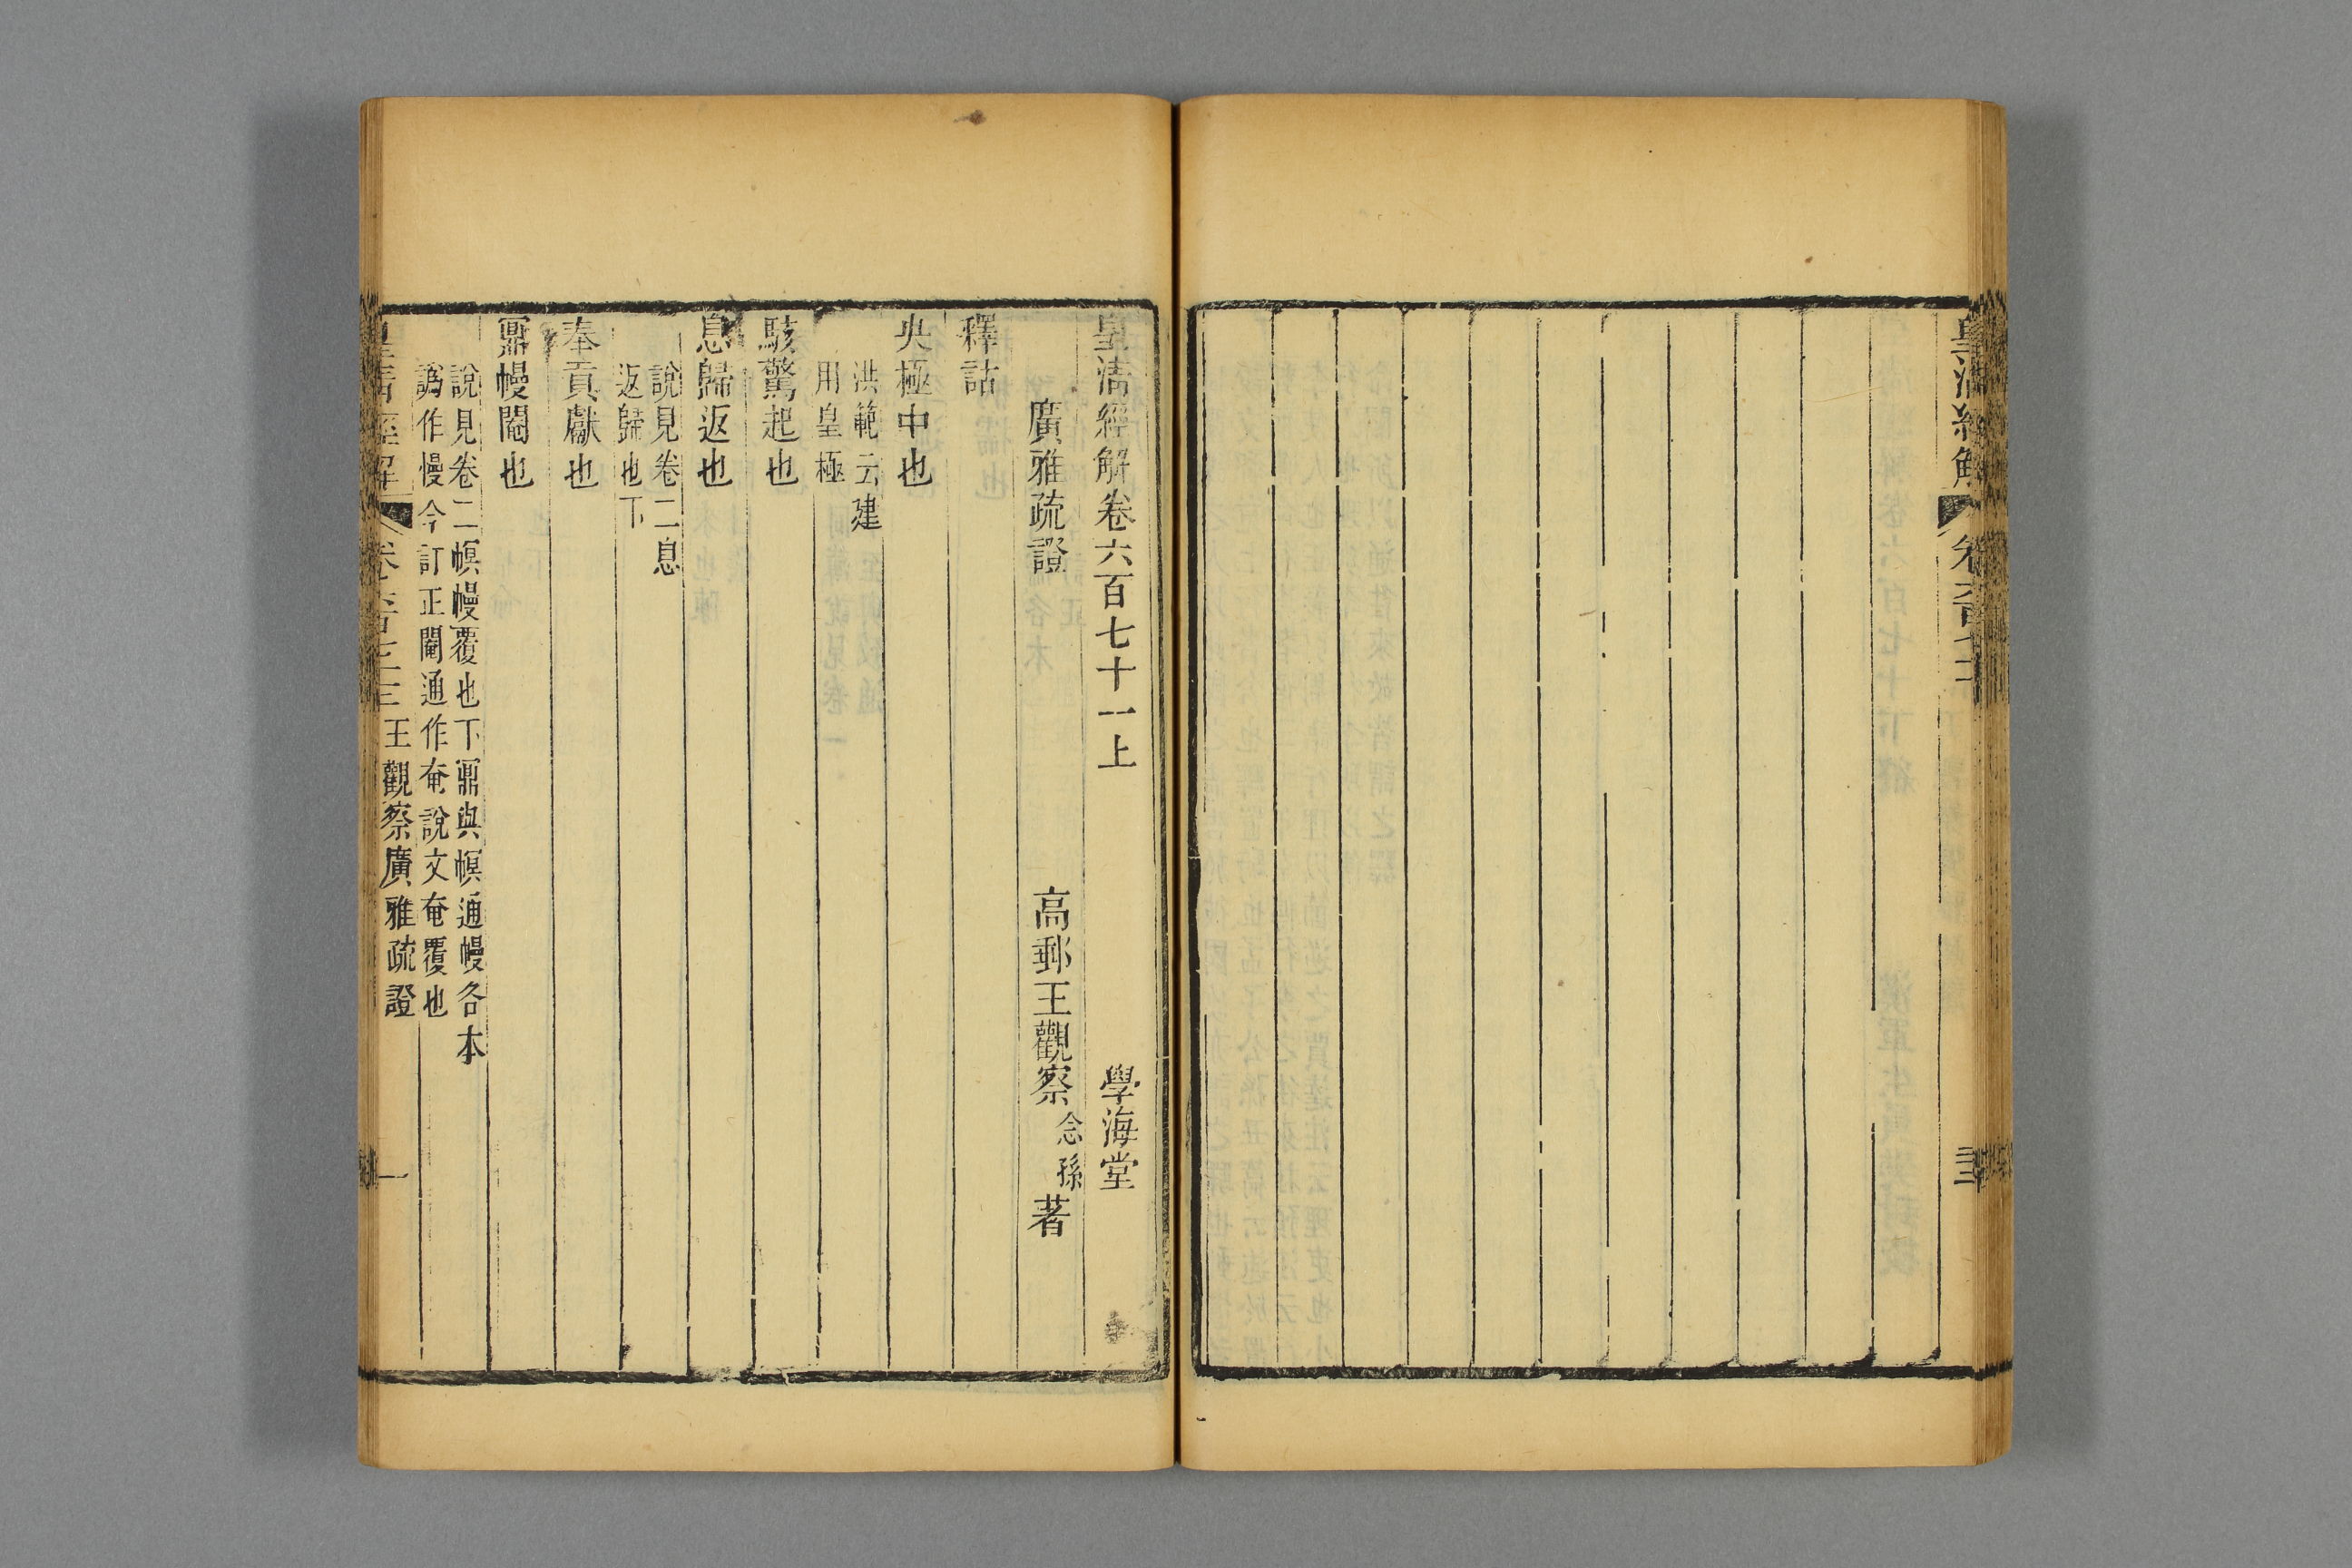 皇清經解
卷六百七十
三
皇清經解卷六百七十一上
學海堂
廣雅疏證
高郵王觀察念孫著
釋詁
央極中也
洪範云建
用皇極
駭驚起也
息歸返也
說見卷二息
返歸也下
奉貢獻也
鼏幔闇也
說見卷二幎幔覆也下鼏與幎通幔各本
譌作慢今訂正闇通作奄說文奄覆也
皇清經解
卷六百七十一
王觀察廣雅疏證
一